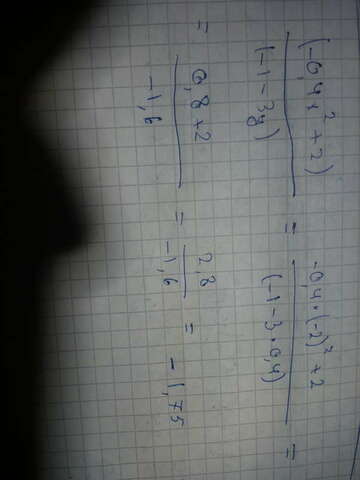 (-0,4x² + 2) / (-1 - 3y) = -0,4·(-2)² + 2 / (-1 - 3·0,4) =
= 0,8 + 2 / -1,6 = 2,8 / -1,6 = -1,75